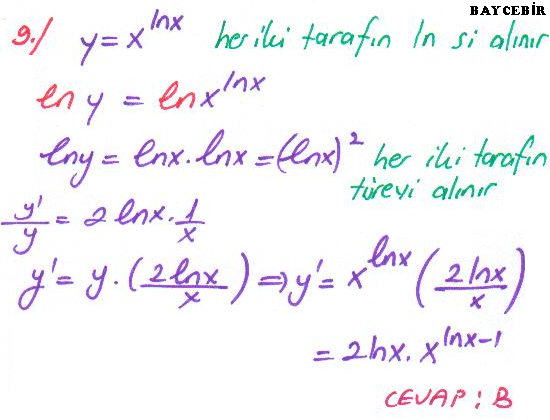 BAYCEBİR
9./ y = x^lnx her iki tarafın ln si alınır
ln y = ln x^lnx
lny = lnx . lnx = (lnx)^2 her iki tarafın
türevi alınır
y'/y = 2 lnx . 1/x
y' = y . (2lnx/x) ⇒ y' = x^lnx (2lnx/x)
= 2lnx . x^lnx-1
CEVAP : B